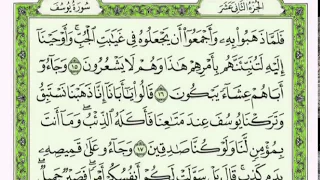 الجزء الثاني عشر
سورة يوسف
فَلَمَّا ذَهَبُوا۟ بِهِۦ وَأَجْمَعُوٓا۟ أَن يَجْعَلُوهُ فِى غَيَٰبَتِ ٱلْجُبِّ ۚ وَأَوْحَيْنَآ
إِلَيْهِ لَتُنَبِّئَنَّهُم بِأَمْرِهِمْ هَٰذَا وَهُمْ لَا يَشْعُرُونَ ١٥ وَجَآءُوٓ
أَبَاهُمْ عِشَآءً يَبْكُونَ ١٦ قَالُوا۟ يَٰٓأَبَانَآ إِنَّا ذَهَبْنَا نَسْتَبِقُ
وَتَرَكْنَا يُوسُفَ عِندَ مَتَٰعِنَا فَأَكَلَهُ ٱلذِّئْبُ ۖ وَمَآ أَنتَ
بِمُؤْمِنٍ لَّنَا وَلَوْ كُنَّا صَٰدِقِينَ ١٧ وَجَآءُو عَلَىٰ قَمِيصِهِۦ
بِدَمٍ كَذِبٍ ۚ قَالَ بَلْ سَوَّلَتْ لَكُمْ أَنفُسُكُمْ أَمْرًا ۖ فَصَبْرٌ جَمِيلٌ ۖ